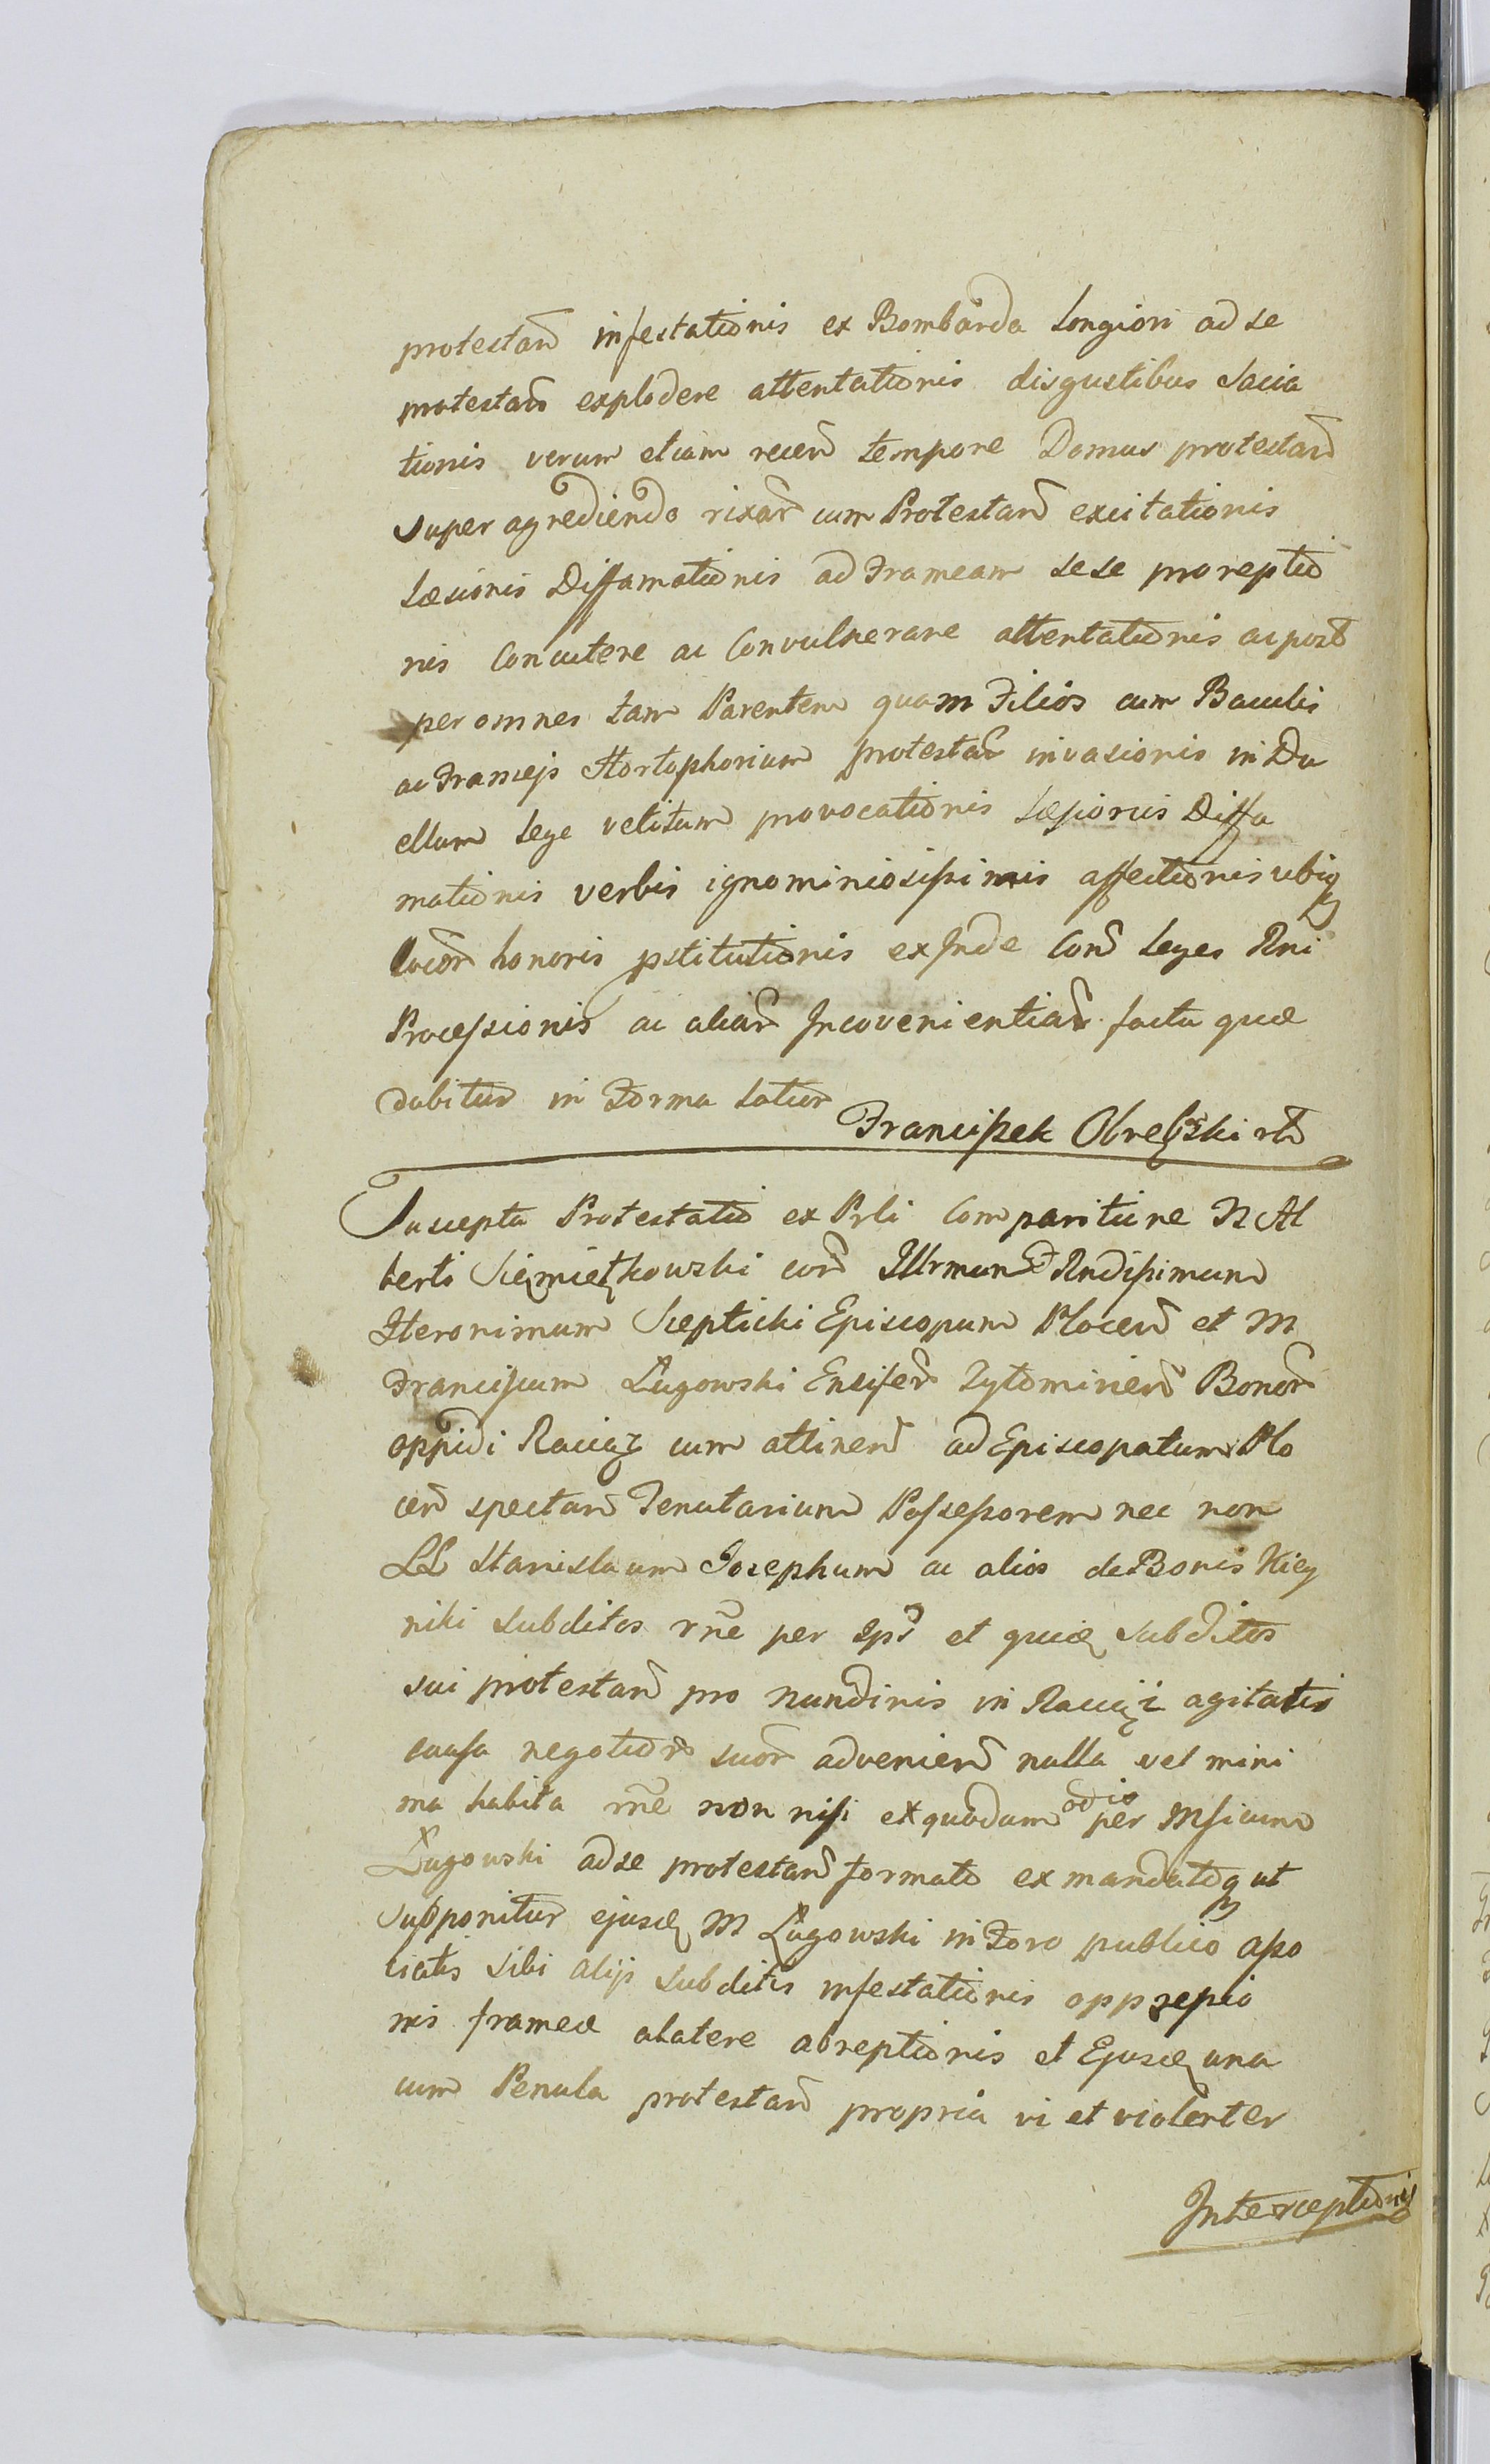 protestañ infestationis ex Bombarda longiori ad se
protestañ explodere attentationis disgustibus Sacia
tionis verum etiam receñ tempore Domus protestañ
super agrediendo rixar̃ cum Protestañ excitationis
Læsionis Diffamationis ad Frameam sese proreptio
nis Concutere ac Convulnerare attentationis ac post
per omnes tam Parentem quam Filios cum Baculis
ac Frameijs Hortophorium protestañ invasionis in Du
ellum Lege vetitum provocationis Læsionis Diffa
mationis verbis ignominiosissimis affectionis ubiq
locor̃ honoris pstitutionis exinde Coñ Leges Rni
Processionis ac aliar̃ Incovenientiar̃ factu quæ
dabitur in Forma latior̃
Franciszek Obrębski rt̃
Suscepta Protestatio ex Prli Comparitione N Al
berti Siemiętkowski coñ Illrmum Rndissimum
Hieronimum Szepticki Episcopum Ploceñ et M
Franciscum Ługowski Ensifer̃ Zytomirieñ Bonor̃
oppidi Raciąz cum attineñ ad Episcopatum Plo
ceñ spectañ Tenutarium Possessorem nec non
LL Stanislaum Josephum ac alios de Bonis Kieg
niki subditos rñe per Ips̃ et quiæ subditos
sui protestañ pro nundinis in Raciąz agitatis
causa negotior̃ suor̃ advenieñ nulla vel mini
ma habita rñe non nisi ex quodam odio per Msicum
Ługowski ad se protestañ formato ex mandatoq ut
supponitur ejusdę M Ługowski in Foro publico asso
ciatis sibi alijs subditis infestationis oppressio
nis frameæ a latere abreptionis et Ejusdę una
cum Penula protestañ propria vi et violenter
Interceptionis